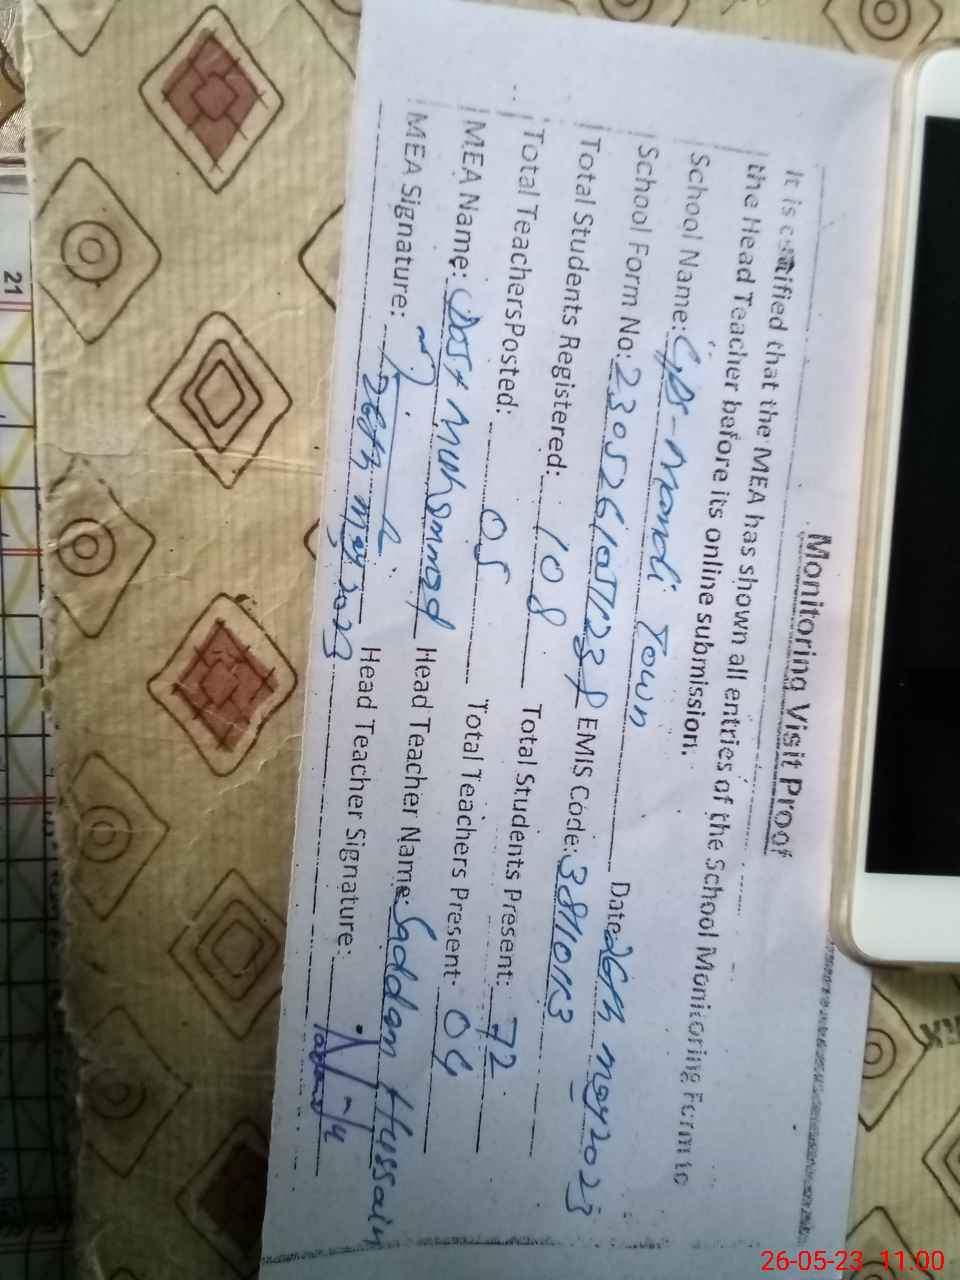 Monitoring Visit Proof
It is certified that the MEA has shown all entries of the School Monitoring Form to
the Head Teacher before its online submission.
School Name: GPS-Mandi Town Date: 26th may 2023
School Form No: EMIS Code:
Total Students Registered: 108 Total Students Present: 72
Total Teachers Posted: 05 Total Teachers Present: 04
MEA Name: Dost Muhammad Head Teacher Name: Saddam Hussain
MEA Signature: Head Teacher Signature:
26th may 2023
21
26-05-23 11:00